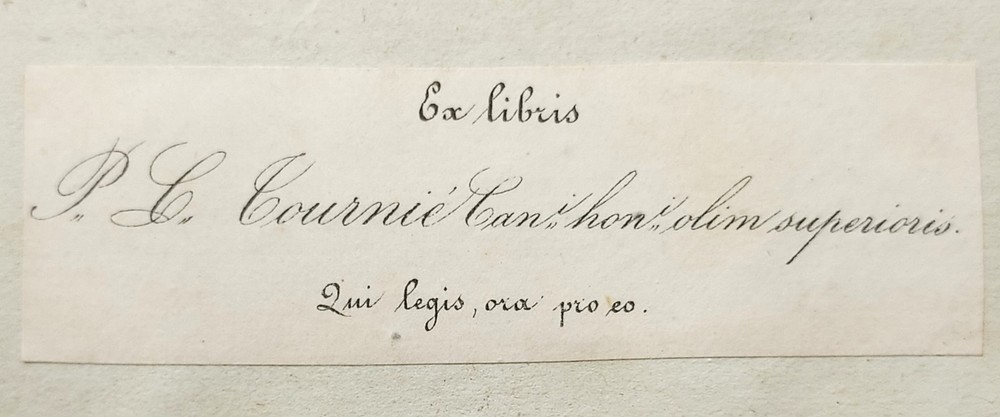 Ex libris
P. L. Tournié Can.i hon.i olim superioris.
Qui legis, ora pro eo.